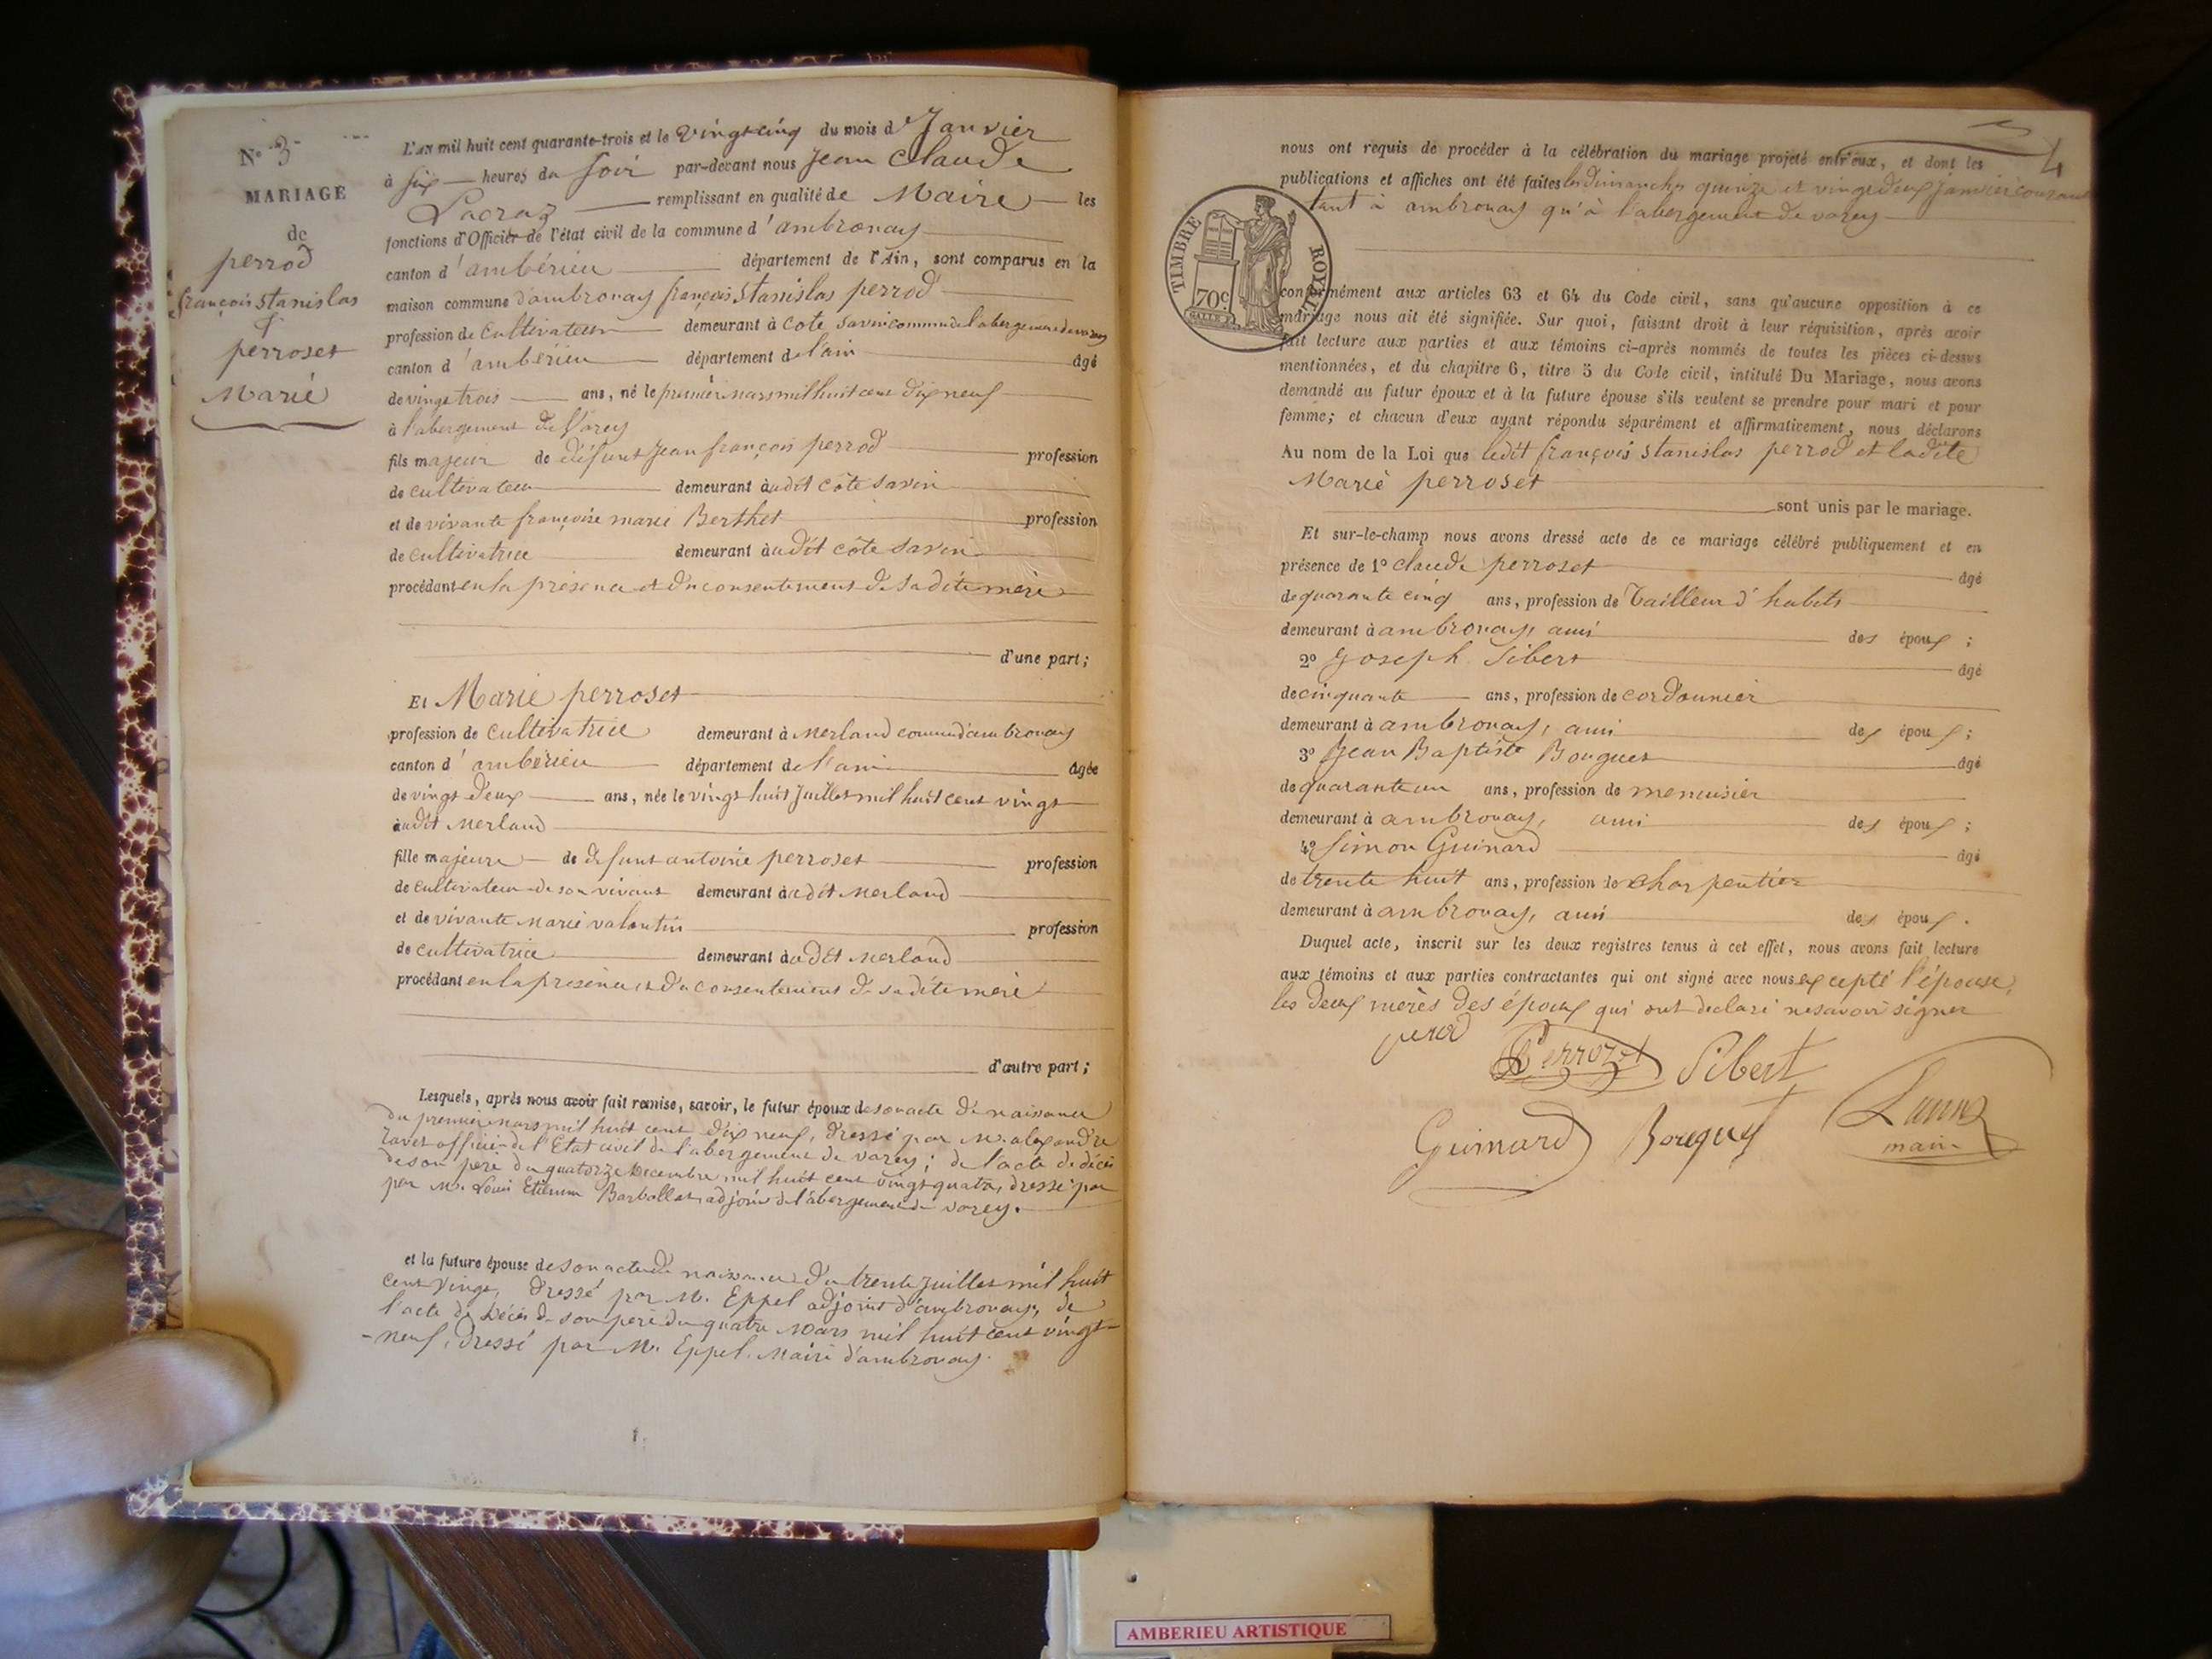 N° 3
MARIAGE
de
perrod
françois Stanislas
&
perroset
Marie
L'AN mil huit cent quarante-trois et le vingt cinq du mois d Janvier
à six heures du soir par-devant nous Jean Claude
Lacraz remplissant en qualité de Maire les
fonctions d'Officier de l'état civil de la commune d'ambronay
canton d'ambérieu département de l'Ain, sont comparus en la
maison commune d'ambronay françois Stanislas perrod
profession de cultivateur demeurant à Cote Savin commune de l'abergement de varey
canton d'ambérieu département de l'ain âgé
de vingt trois ans, né le premier mars mil huit cent dix neuf
à l'abergement de Varey
fils majeur de défunt Jean françois perrod profession
de cultivateur demeurant audit côte Savin
et de vivante françoise marie Berthet profession
de cultivatrice demeurant audit côte Savin
procédant en la présence et du consentement de sadite mere
d'une part;
Et Marie perroset
profession de cultivatrice demeurant à Merland commune d'ambronay
canton d'ambérieu département de l'ain âgée
de vingt deux ans, née le vingt huit Juillet mil huit cent vingt
audit Merland
fille majeure de defunt antoine perroset profession
de cultivateur de son vivant demeurant audit Merland
et de vivante Marie valentin profession
de cultivatrice demeurant audit Merland
procédant en la présence et du consentement de sadite mere
d'autre part;
Lesquels, après nous avoir fait remise, savoir, le futur époux de son acte de naissance
du premier mars mil huit cent dix neuf, dressé par M. alexandre
officier de l'Etat civil de l'abergement de varey; de l'acte de décès
de son pere du quatorze Decembre mil huit cent vingt quatre, dressé par
par M. Louis Etienne Barbollat adjoint de l'abergement de varey.
et la future épouse de son acte de naissance du trente Juillet mil huit
cent vingt, dressé par M. Eppel adjoint d'ambronay, de
l'acte de Décès de son pere du quatre Mars mil huit cent vingt-
-neuf, dressé par M. Eppel. Maire d'ambronay.
4
nous ont requis de procéder à la célébration du mariage projeté entr'eux, et dont les
publications et affiches ont été faites les dimanches quinze et vingt deux Janvier courant
tant à ambronay qu'à l'abergement de varey
TIMBRE ROYAL
70c
conformément aux articles 63 et 64 du Code civil, sans qu'aucune opposition à ce
mariage nous ait été signifiée. Sur quoi, faisant droit à leur réquisition, après avoir
fait lecture aux parties et aux témoins ci-après nommés de toutes les pièces ci-dessus
mentionnées, et du chapitre 6, titre 5 du Code civil, intitulé Du Mariage, nous avons
demandé au futur époux et à la future épouse s'ils veulent se prendre pour mari et pour
femme; et chacun d'eux ayant répondu séparément et affirmativement, nous déclarons
Au nom de la Loi que ledit françois Stanislas perrod et ladite
Marie perroset
sont unis par le mariage.
Et sur-le-champ nous avons dressé acte de ce mariage célébré publiquement et en
présence de 1° Claude perroset âgé
de quarante cinq ans, profession de Tailleur d'habits
demeurant à ambronay, ami des époux;
2° Joseph Sibert âgé
de cinquante ans, profession de cordonnier
demeurant à ambronay, ami des époux;
3° Jean Baptiste Bouguet âgé
de quarante un ans, profession de menuisier
demeurant à ambronay, ami des époux;
4° Simon Guinard âgé
de trente huit ans, profession de charpentier
demeurant à ambronay, ami des époux.
Duquel acte, inscrit sur les deux registres tenus à cet effet, nous avons fait lecture
aux témoins et aux parties contractantes qui ont signé avec nous excepté l'épouse,
les deux mères des époux qui ont declaré ne savoir signer
perod
Perrozet
Sibert
Guinard
maire
AMBERIEU ARTISTIQUE